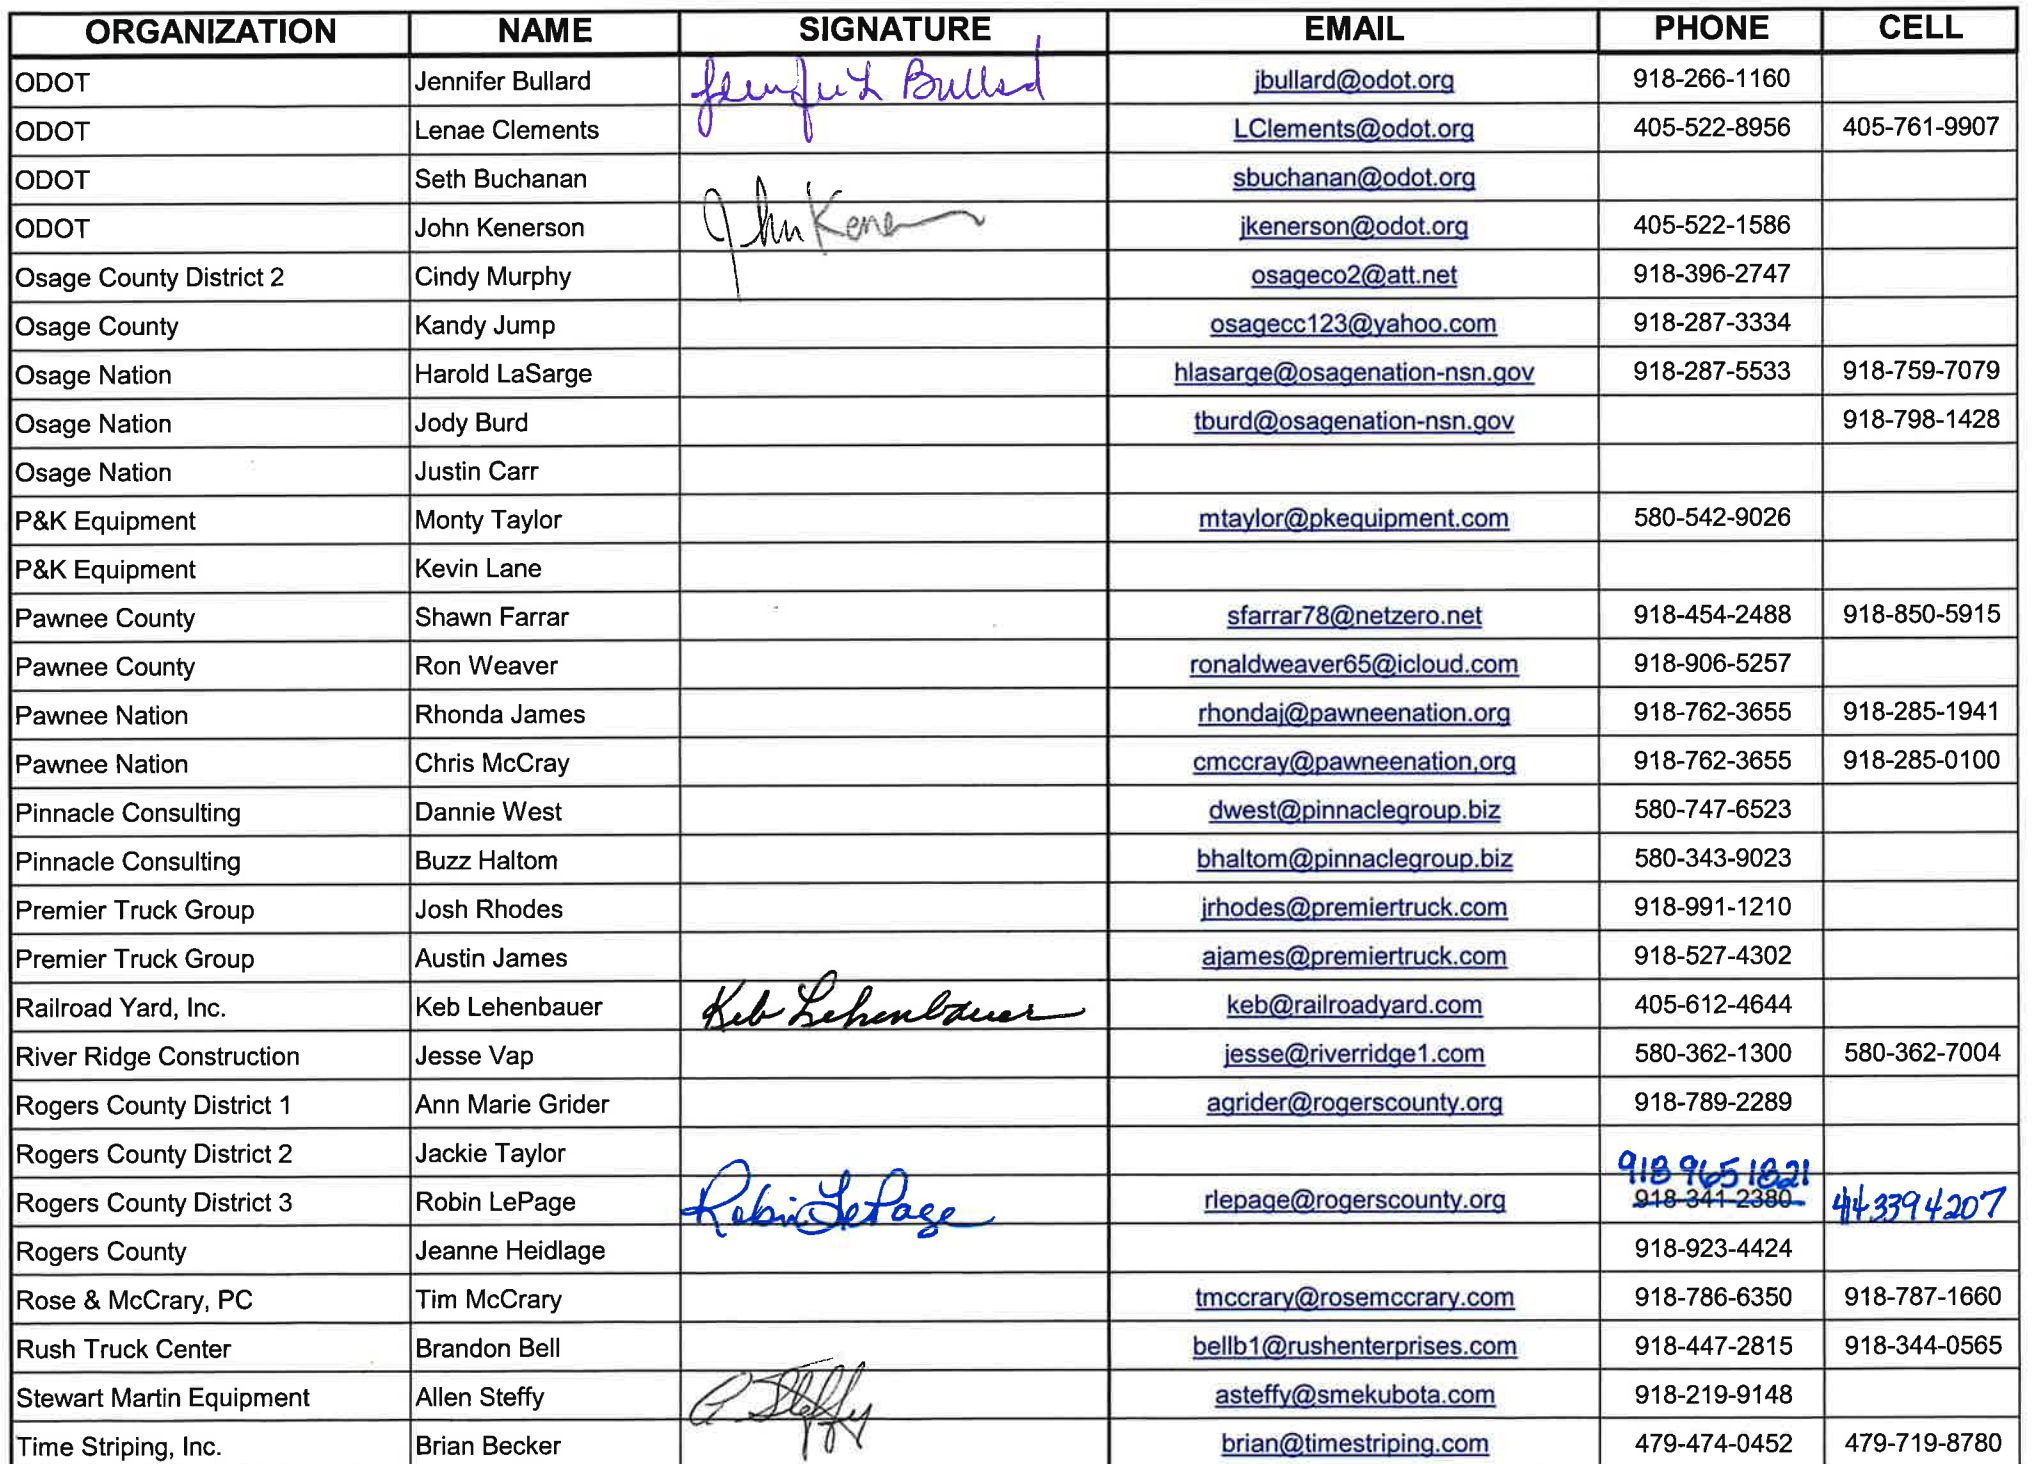 ORGANIZATION NAME SIGNATURE EMAIL PHONE CELL
ODOT Jennifer Bullard Jennifer L Bullard jbullard@odot.org 918-266-1160
ODOT Lenae Clements LClements@odot.org 405-522-8956 405-761-9907
ODOT Seth Buchanan sbuchanan@odot.org
ODOT John Kenerson John Kenerson jkenerson@odot.org 405-522-1586
Osage County District 2 Cindy Murphy osageco2@att.net 918-396-2747
Osage County Kandy Jump osagecc123@yahoo.com 918-287-3334
Osage Nation Harold LaSarge hlasarge@osagenation-nsn.gov 918-287-5533 918-759-7079
Osage Nation Jody Burd tburd@osagenation-nsn.gov 918-798-1428
Osage Nation Justin Carr
P&K Equipment Monty Taylor mtaylor@pkequipment.com 580-542-9026
P&K Equipment Kevin Lane
Pawnee County Shawn Farrar sfarrar78@netzero.net 918-454-2488 918-850-5915
Pawnee County Ron Weaver ronaldweaver65@icloud.com 918-906-5257
Pawnee Nation Rhonda James rhondaj@pawneenation.org 918-762-3655 918-285-1941
Pawnee Nation Chris McCray cmccray@pawneenation,org 918-762-3655 918-285-0100
Pinnacle Consulting Dannie West dwest@pinnaclegroup.biz 580-747-6523
Pinnacle Consulting Buzz Haltom bhaltom@pinnaclegroup.biz 580-343-9023
Premier Truck Group Josh Rhodes jrhodes@premiertruck.com 918-991-1210
Premier Truck Group Austin James ajames@premiertruck.com 918-527-4302
Railroad Yard, Inc. Keb Lehenbauer Keb Lehenbauer keb@railroadyard.com 405-612-4644
River Ridge Construction Jesse Vap jesse@riverridge1.com 580-362-1300 580-362-7004
Rogers County District 1 Ann Marie Grider agrider@rogerscounty.org 918-789-2289
Rogers County District 2 Jackie Taylor
918 965 1821
Rogers County District 3 Robin LePage Robin LePage rlepage@rogerscounty.org 918-341-2380 443394207
Rogers County Jeanne Heidlage 918-923-4424
Rose & McCrary, PC Tim McCrary tmccrary@rosemccrary.com 918-786-6350 918-787-1660
Rush Truck Center Brandon Bell bellb1@rushenterprises.com 918-447-2815 918-344-0565
Stewart Martin Equipment Allen Steffy A Steffy asteffy@smekubota.com 918-219-9148
Time Striping, Inc. Brian Becker brian@timestriping.com 479-474-0452 479-719-8780